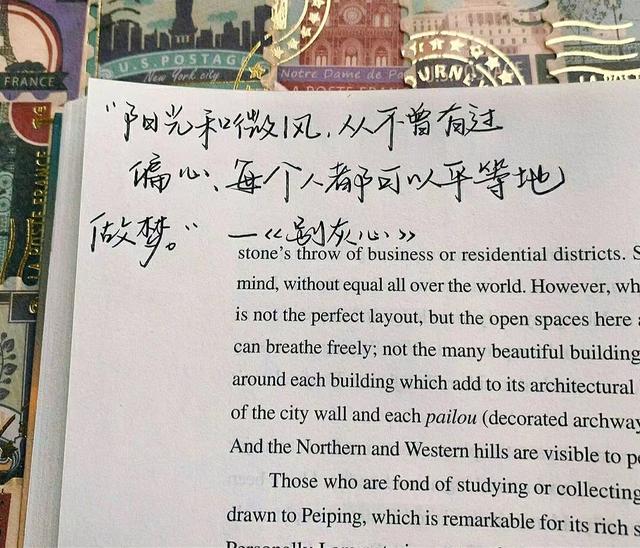 FRANCE
U.S. POSTAGE
New York city
Notre Dame de Pa
OURNE
A POSTE FRANCE
LA POSTE FRANCE
“阳光和微风,从不曾有过
偏心、每个人都可以平等地
做梦。” —《别灰心》
stone's throw of business or residential districts. S
mind, without equal all over the world. However, wh
is not the perfect layout, but the open spaces here a
can breathe freely; not the many beautiful building
around each building which add to its architectural
of the city wall and each pailou (decorated archway
And the Northern and Western hills are visible to pe
Those who are fond of studying or collecting
drawn to Peiping, which is remarkable for its rich s